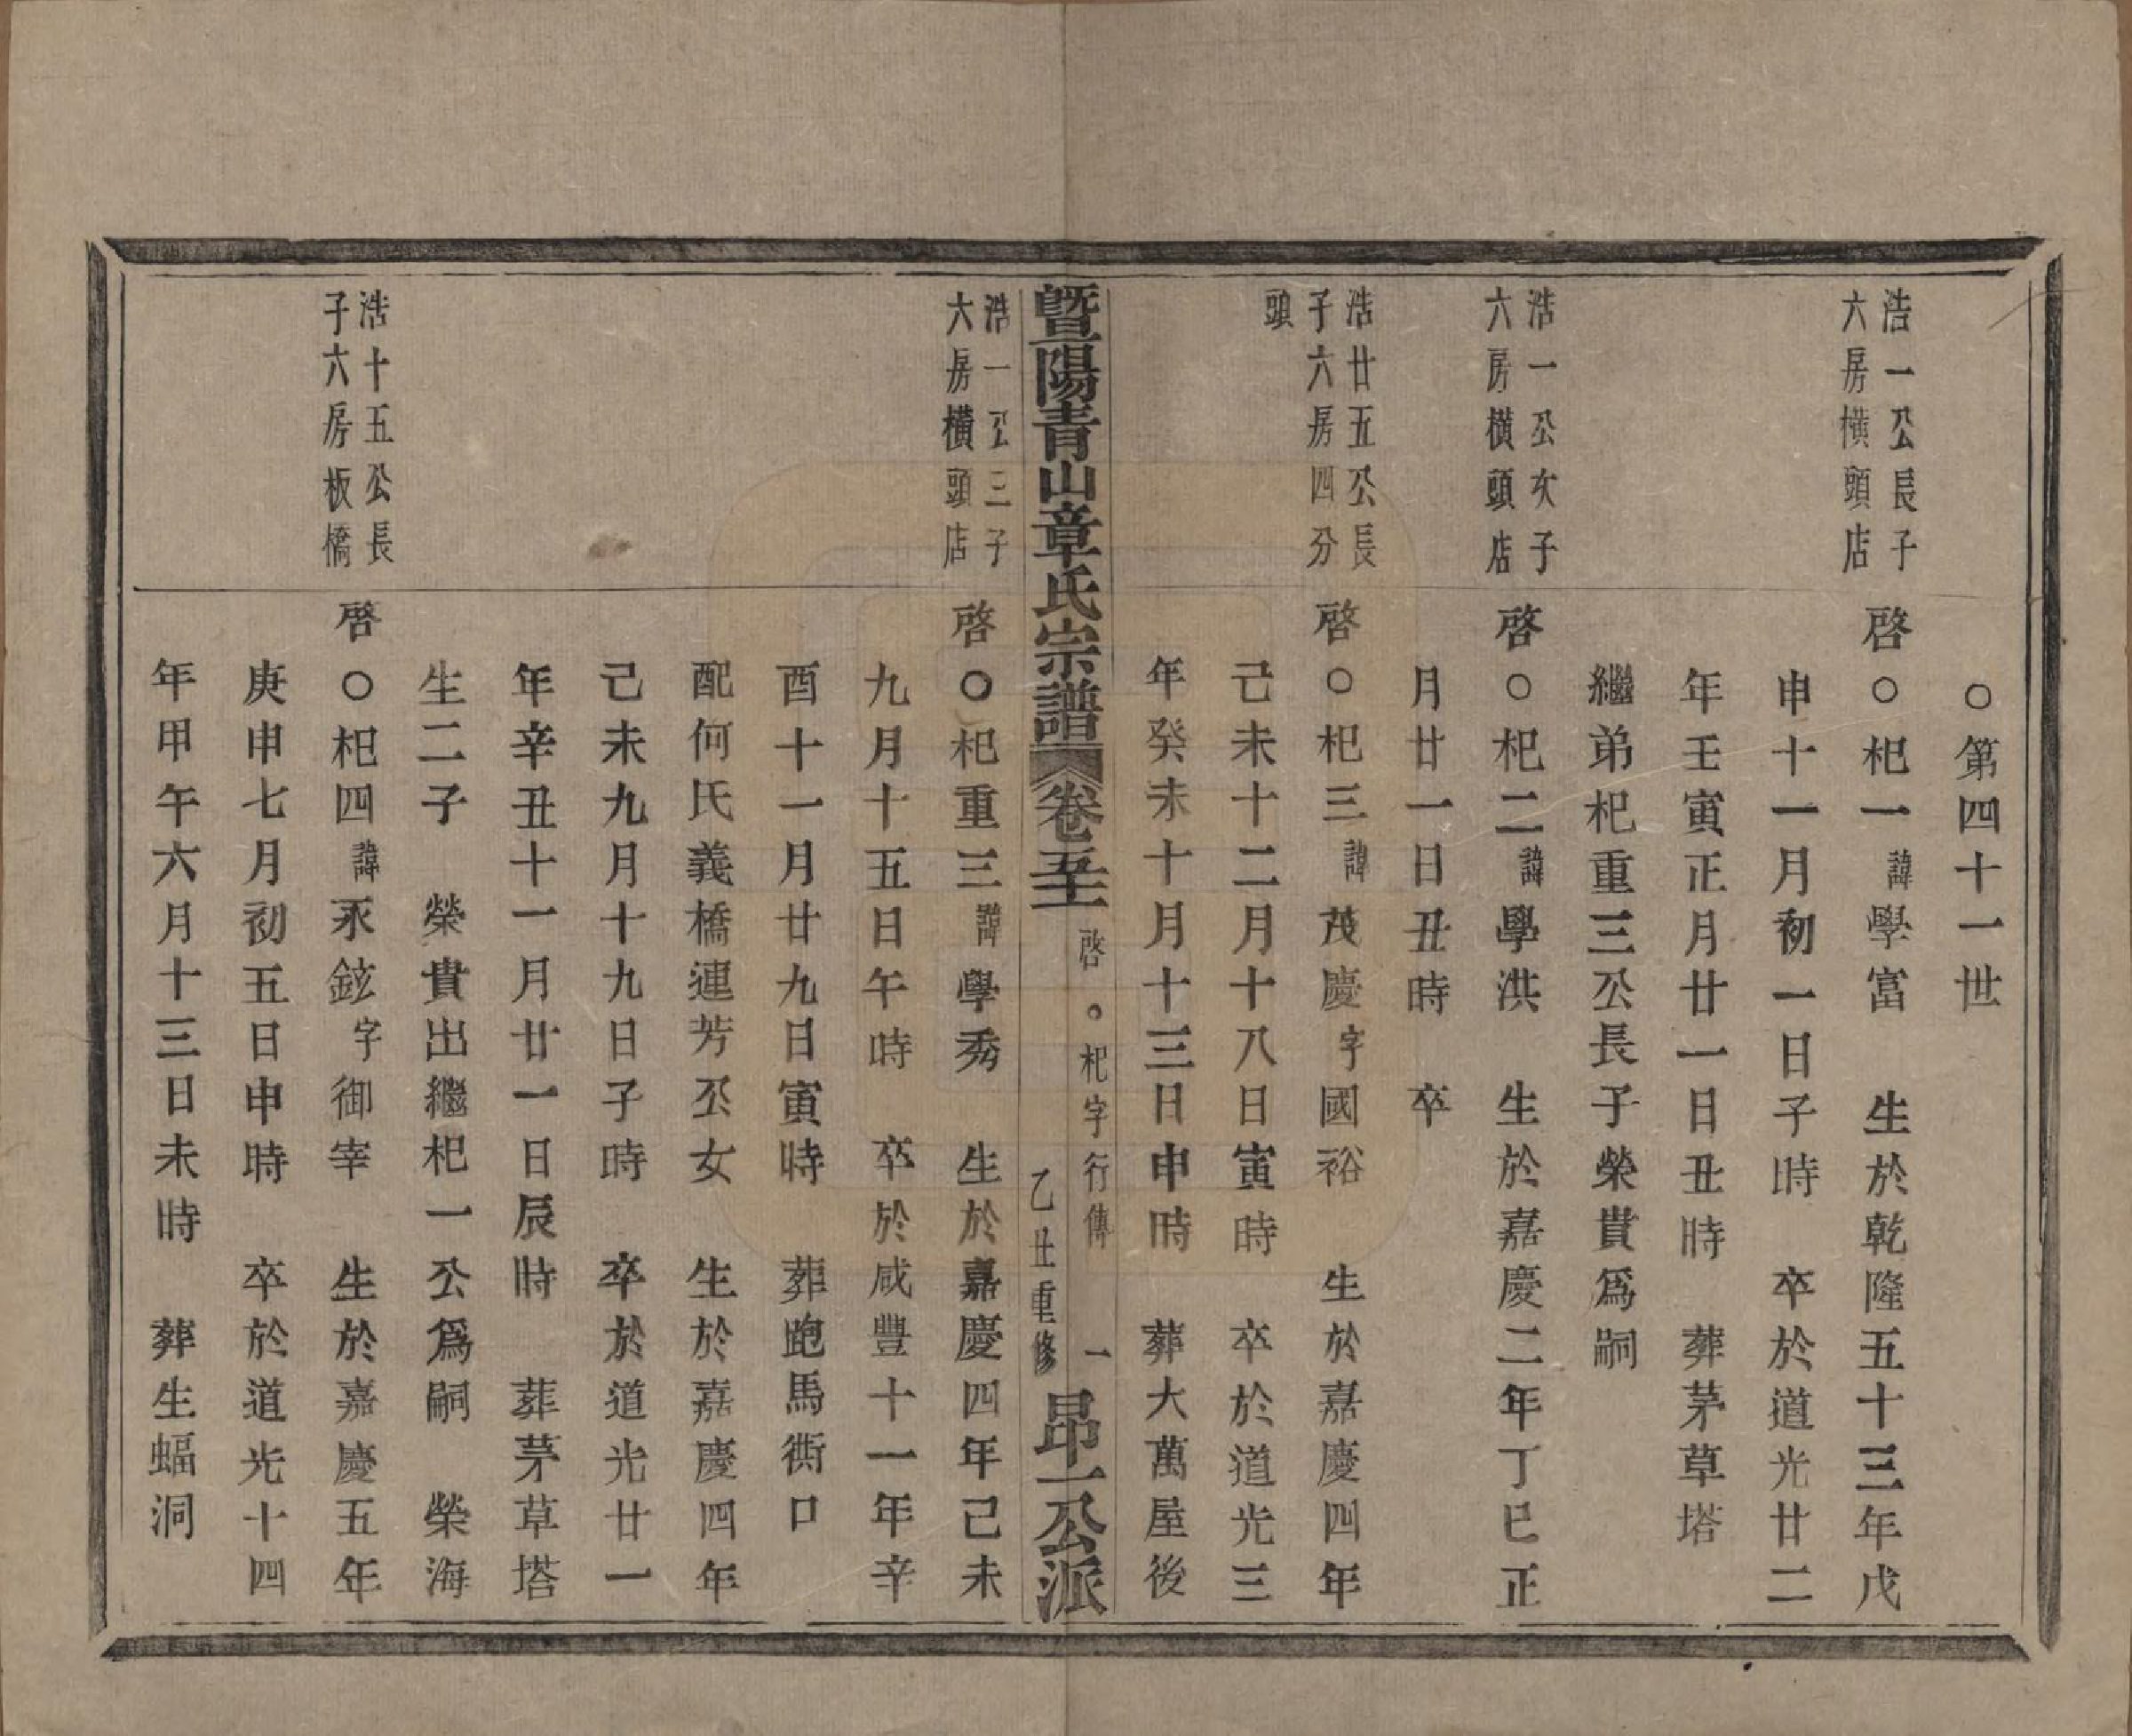 ○第四十一世
浩一公長子
六房橫頭店
啓○杞一諱學富　生於乾隆五十三年戊
申十一月初一日子時　卒於道光廿二
年壬寅正月廿一日丑時　葬茅草塔
繼弟杞重三公長子榮貴爲嗣
浩一公次子
六房橫頭店
啓○杞二諱學洪　生於嘉慶二年丁巳正
月廿一日丑時　卒
浩廿五公長
子六房四分
頭
啓○杞三諱茂慶字國裕　生於嘉慶四年
己未十二月十八日寅時　卒於道光三
年癸未十月十三日申時　葬大萬屋後
暨陽青山章氏宗譜 卷五十 啓○杞字行傳 一 乙丑重修 昂一公派
浩一公三子
六房橫頭店
啓○杞重三諱學秀　生於嘉慶四年己未
九月十五日午時　卒於咸豐十一年辛
酉十一月廿九日寅時　葬跑馬衖口
配何氏義橋連芳公女　生於嘉慶四年
己未九月十九日子時　卒於道光廿一
年辛丑十一月廿一日辰時　葬茅草塔
生二子　榮貴出繼杞一公爲嗣　榮海
浩十五公長
子六房板橋
啓○杞四諱永鉉字御宰　生於嘉慶五年
庚申七月初五日申時　卒於道光十四
年甲午六月十三日未時　葬生蝠洞